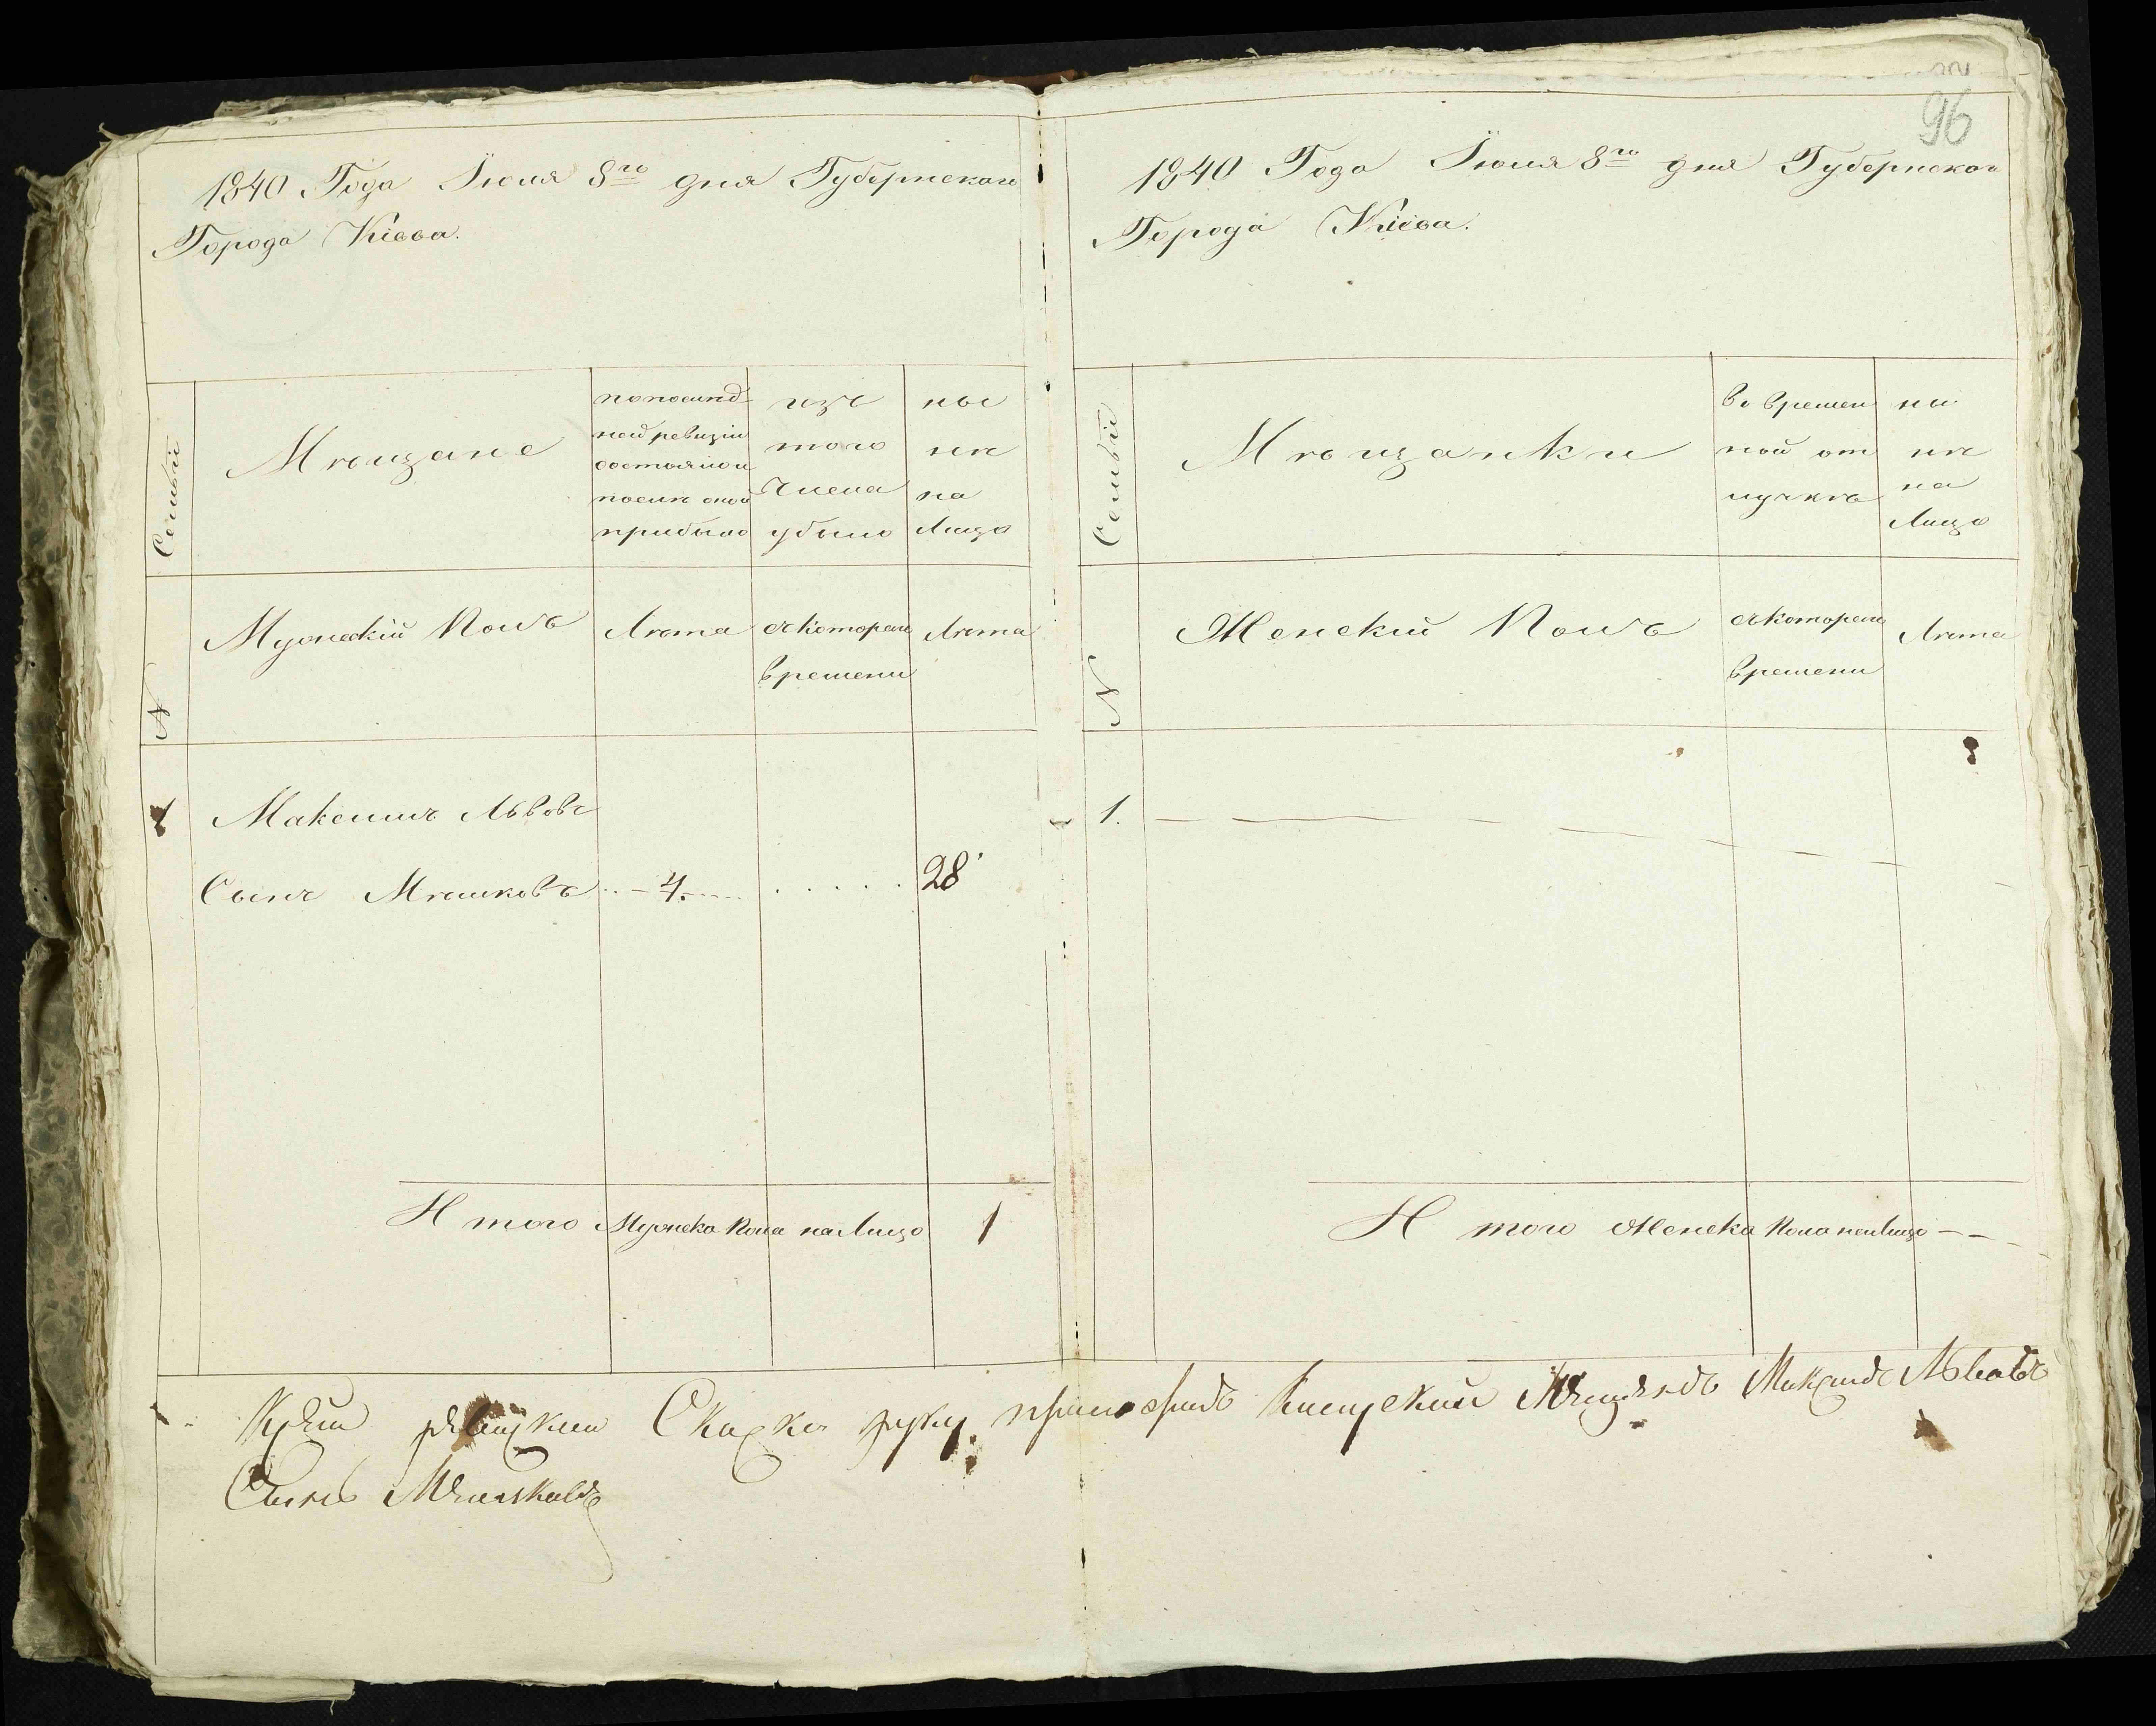 96
1840 Года Іюля 8го дня Губернскаго
Города Кіева.
Семьи
Мѣщане
по послѣд
ней ревизіи
состояло и
послѣ оной
прибыло
изъ
того
числа
убыло
ны
нѣ
на
лицо
N
Мужескій Полъ
Лѣта
съ котораго
времени
Лѣта
1
Максимъ Львовъ
Сынъ Мѣшковъ 4. 28
И того Мужеска Пола на Лицо 1
1840 Года Іюля 8го дня Губернскаго
Города Кіева.
Семьи
Мѣщанки
во времен
ной от
лучкѣ
ны
нѣ
на
Лицо
N
Женскій Полъ
съ котораго
времени
Лѣта
1.
И того Женска Пола на Лицо
Сказки руку приложилъ Киевский Мещанинъ Максимъ Львовъ
Сынъ Мешковъ